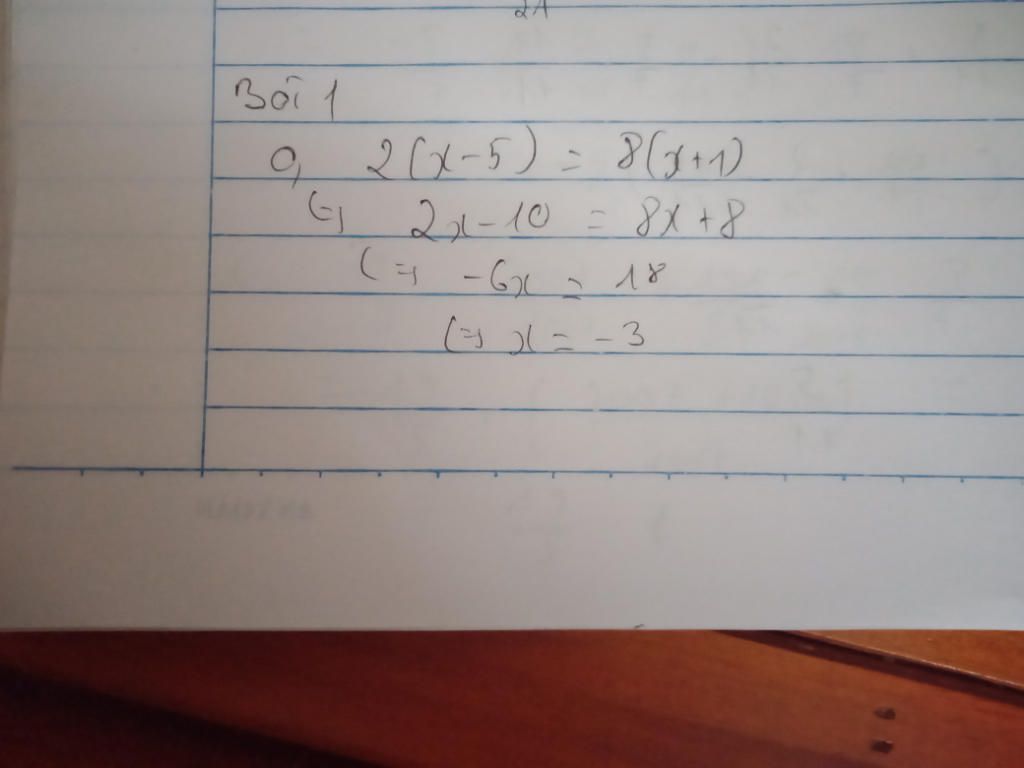 21
Bài 1
a, 2(x-5) = 8(x+1)
(=) 2x-10 = 8x+8
(=) -6x = 18
(=) x = -3